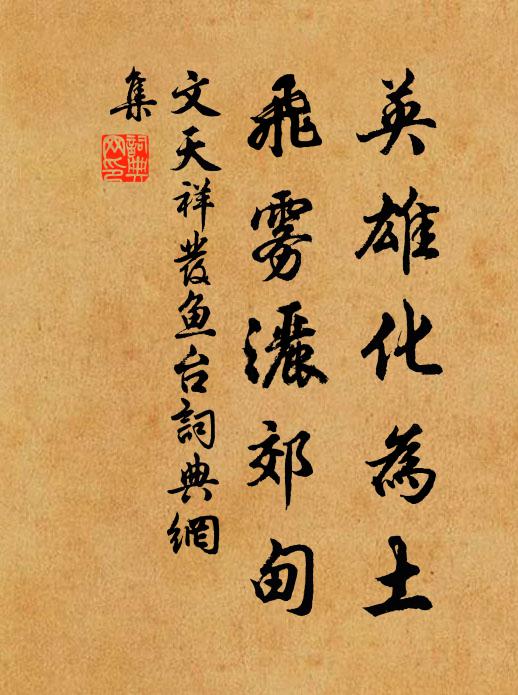 英雄化為土
飛雾灑郊甸
文天祥發鱼台詞典網
集
詞典网印